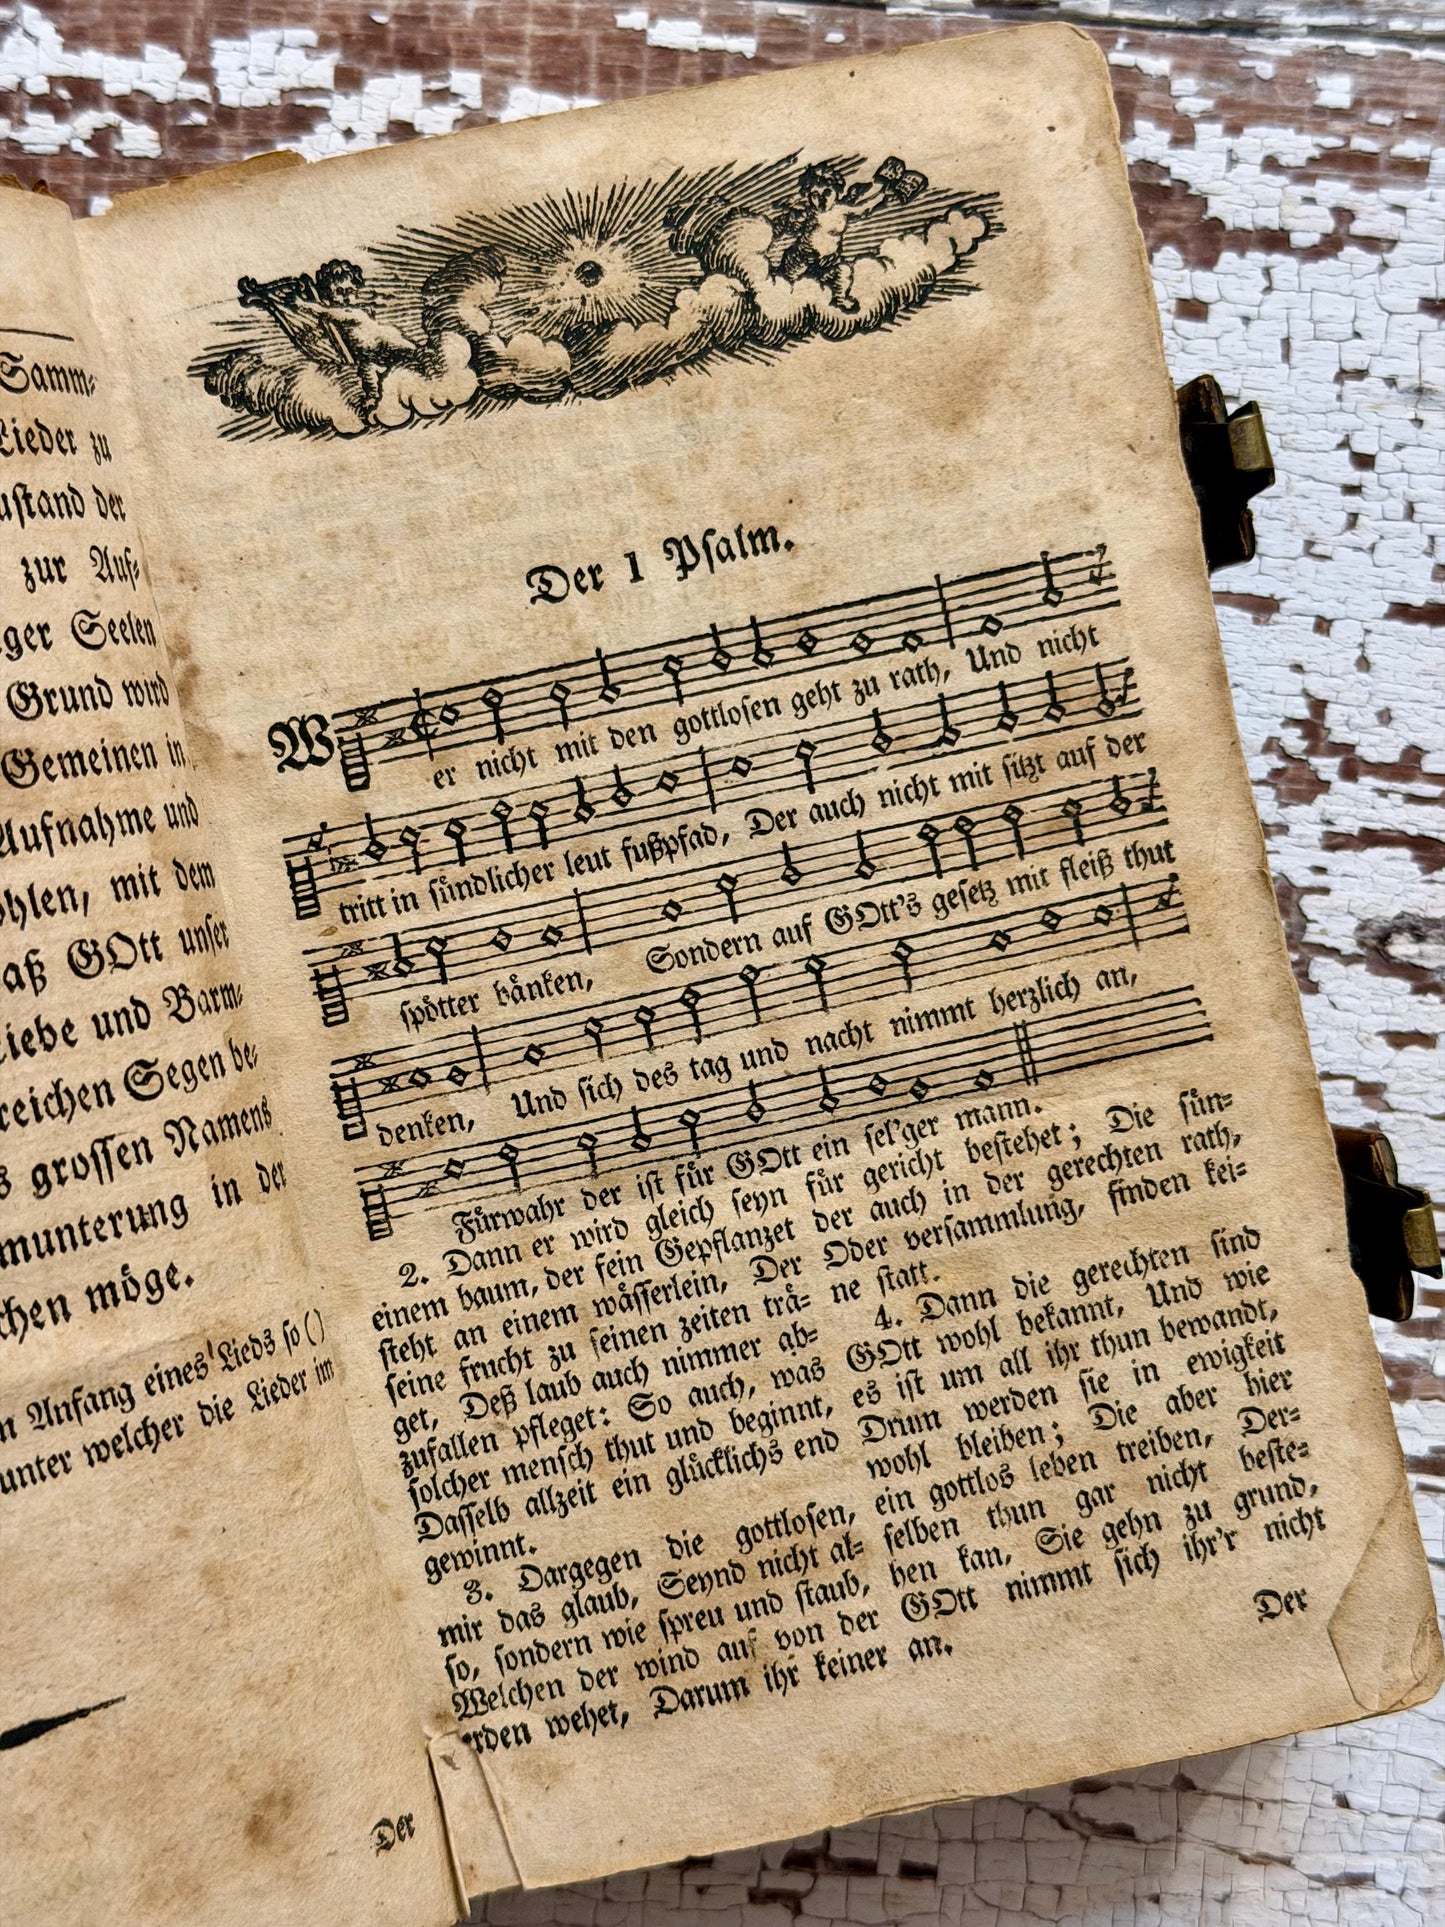 Samm⸗
Lieder zu
uſtand der
zur Auf⸗
ger Seelen
Grund wird
Gemeinen in
Aufnahme und
ohlen, mit dem
aß GOtt unſer
Liebe und Barm⸗
reichen Segen be⸗
s groſſen Namens
munterung in der
chen möge.
n Anfang eines Lieds ſo ( )
unter welcher die Lieder im
Der
Der 1 Pſalm.
Wer nicht mit den gottloſen geht zu rath, Und nicht
tritt in ſündlicher leut fußpfad, Der auch nicht mit ſitzt auf der
ſpötter bänken, Sondern auf GOtt's geſetz mit fleiß thut
denken, Und ſich des tag und nacht nimmt herzlich an,
Fürwahr der iſt für GOtt ein ſel'ger mann.
2. Dann er wird gleich
einem baum, der fein Gepflanzet
ſteht an einem wäſſerlein, Der
ſeine frucht zu ſeinen zeiten trä⸗
get, Deß laub auch nimmer ab⸗
zufallen pfleget: So auch, was
ſolcher menſch thut und beginnt,
Daſſelb allzeit ein glücklichs end
gewinnt.
3. Dargegen die gottloſen,
mir das glaub, Seynd nicht al⸗
ſo, ſondern wie ſpreu und ſtaub,
Welchen der wind auf von der
erden wehet, Darum ihr keiner an.
ſeyn für gericht beſtehet; Die ſün⸗
der auch in der gerechten rath,
Oder verſammlung, finden kei⸗
ne ſtatt.
4. Dann die gerechten ſind
GOtt wohl bekannt, Und wie
es iſt um all ihr thun bewandt,
Drum werden ſie in ewigkeit
wohl bleiben; Die aber hier
ein gottlos leben treiben, Der⸗
ſelben thun gar nicht beſte⸗
hen kan, Sie gehn zu grund,
GOtt nimmt ſich ihr'r nicht
Der